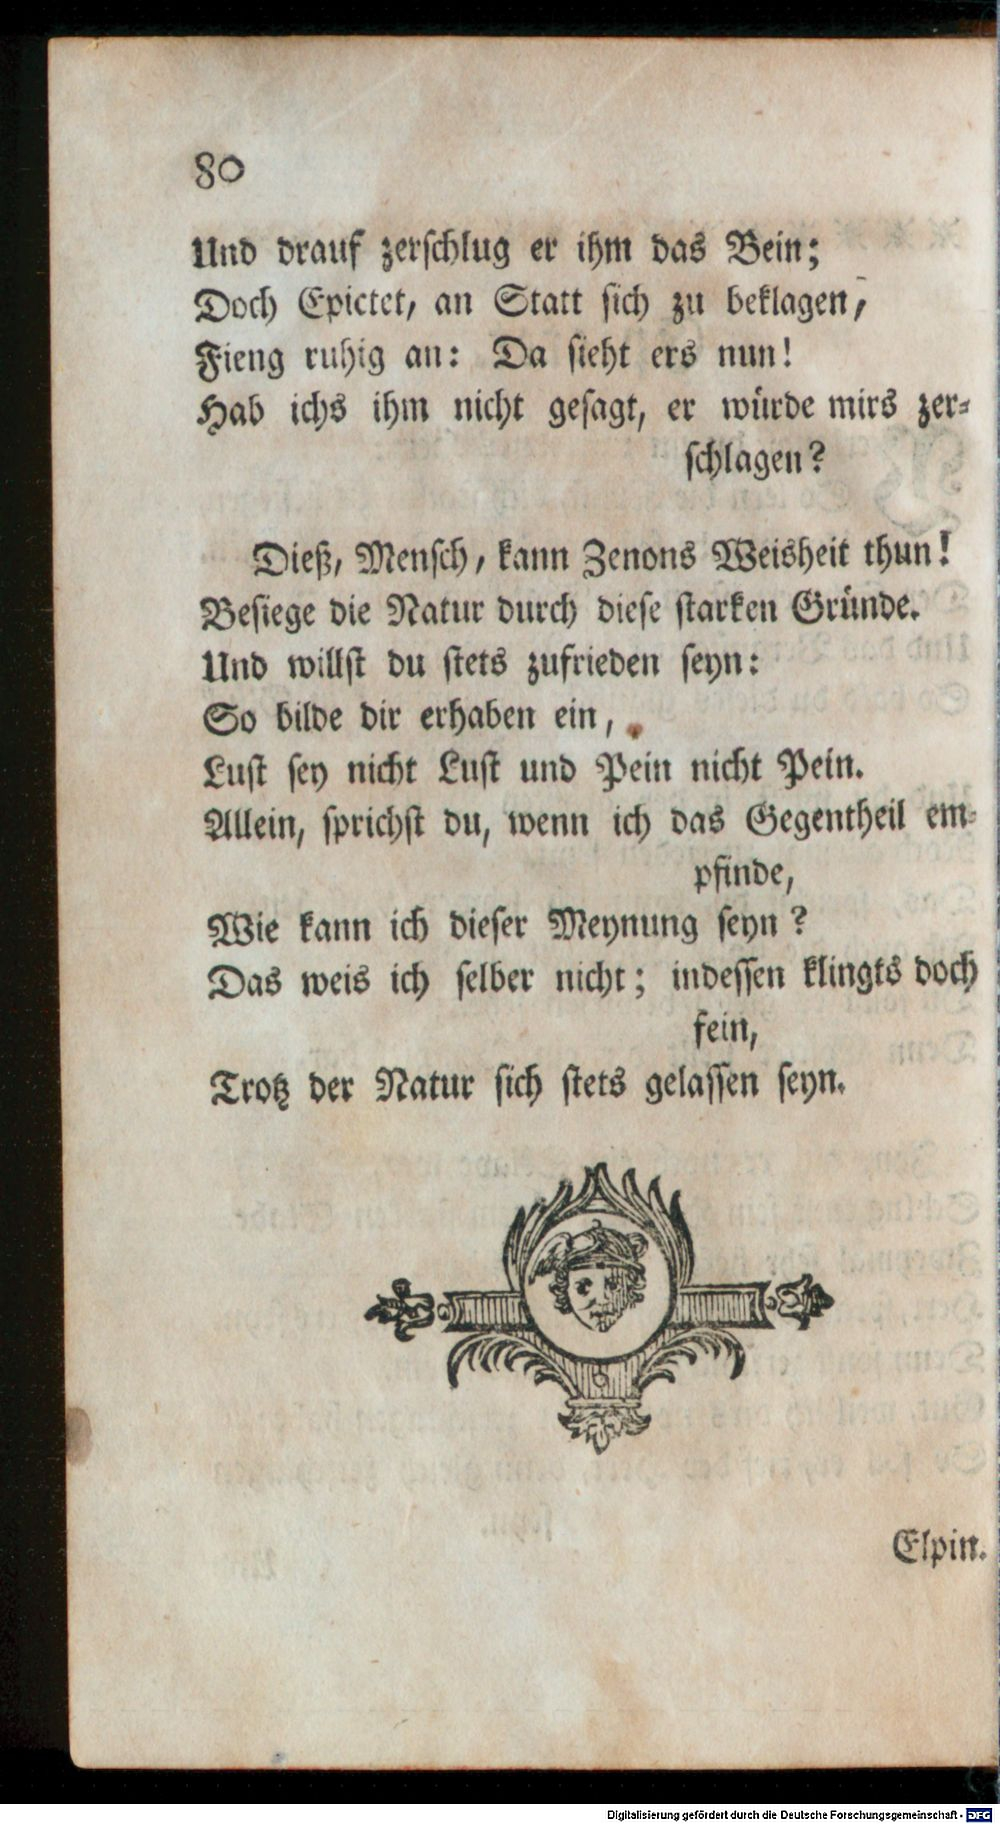 80
Und drauf zerschlug er ihm das Bein;
Doch Epictet, an Statt sich zu beklagen,
Fieng ruhig an: Da sieht ers nun!
Hab ichs ihm nicht gesagt, er würde mirs zer-
schlagen?
Dieß, Mensch, kann Zenons Weisheit thun!
Besiege die Natur durch diese starken Gründe.
Und willst du stets zufrieden seyn:
So bilde dir erhaben ein,
Lust sey nicht Lust und Pein nicht Pein.
Allein, sprichst du, wenn ich das Gegentheil em-
pfinde,
Wie kann ich dieser Meynung seyn?
Das weis ich selber nicht; indessen klingts doch
fein,
Trotz der Natur sich stets gelassen seyn.
Elpin.
Digitalisierung gefördert durch die Deutsche Forschungsgemeinschaft - DFG